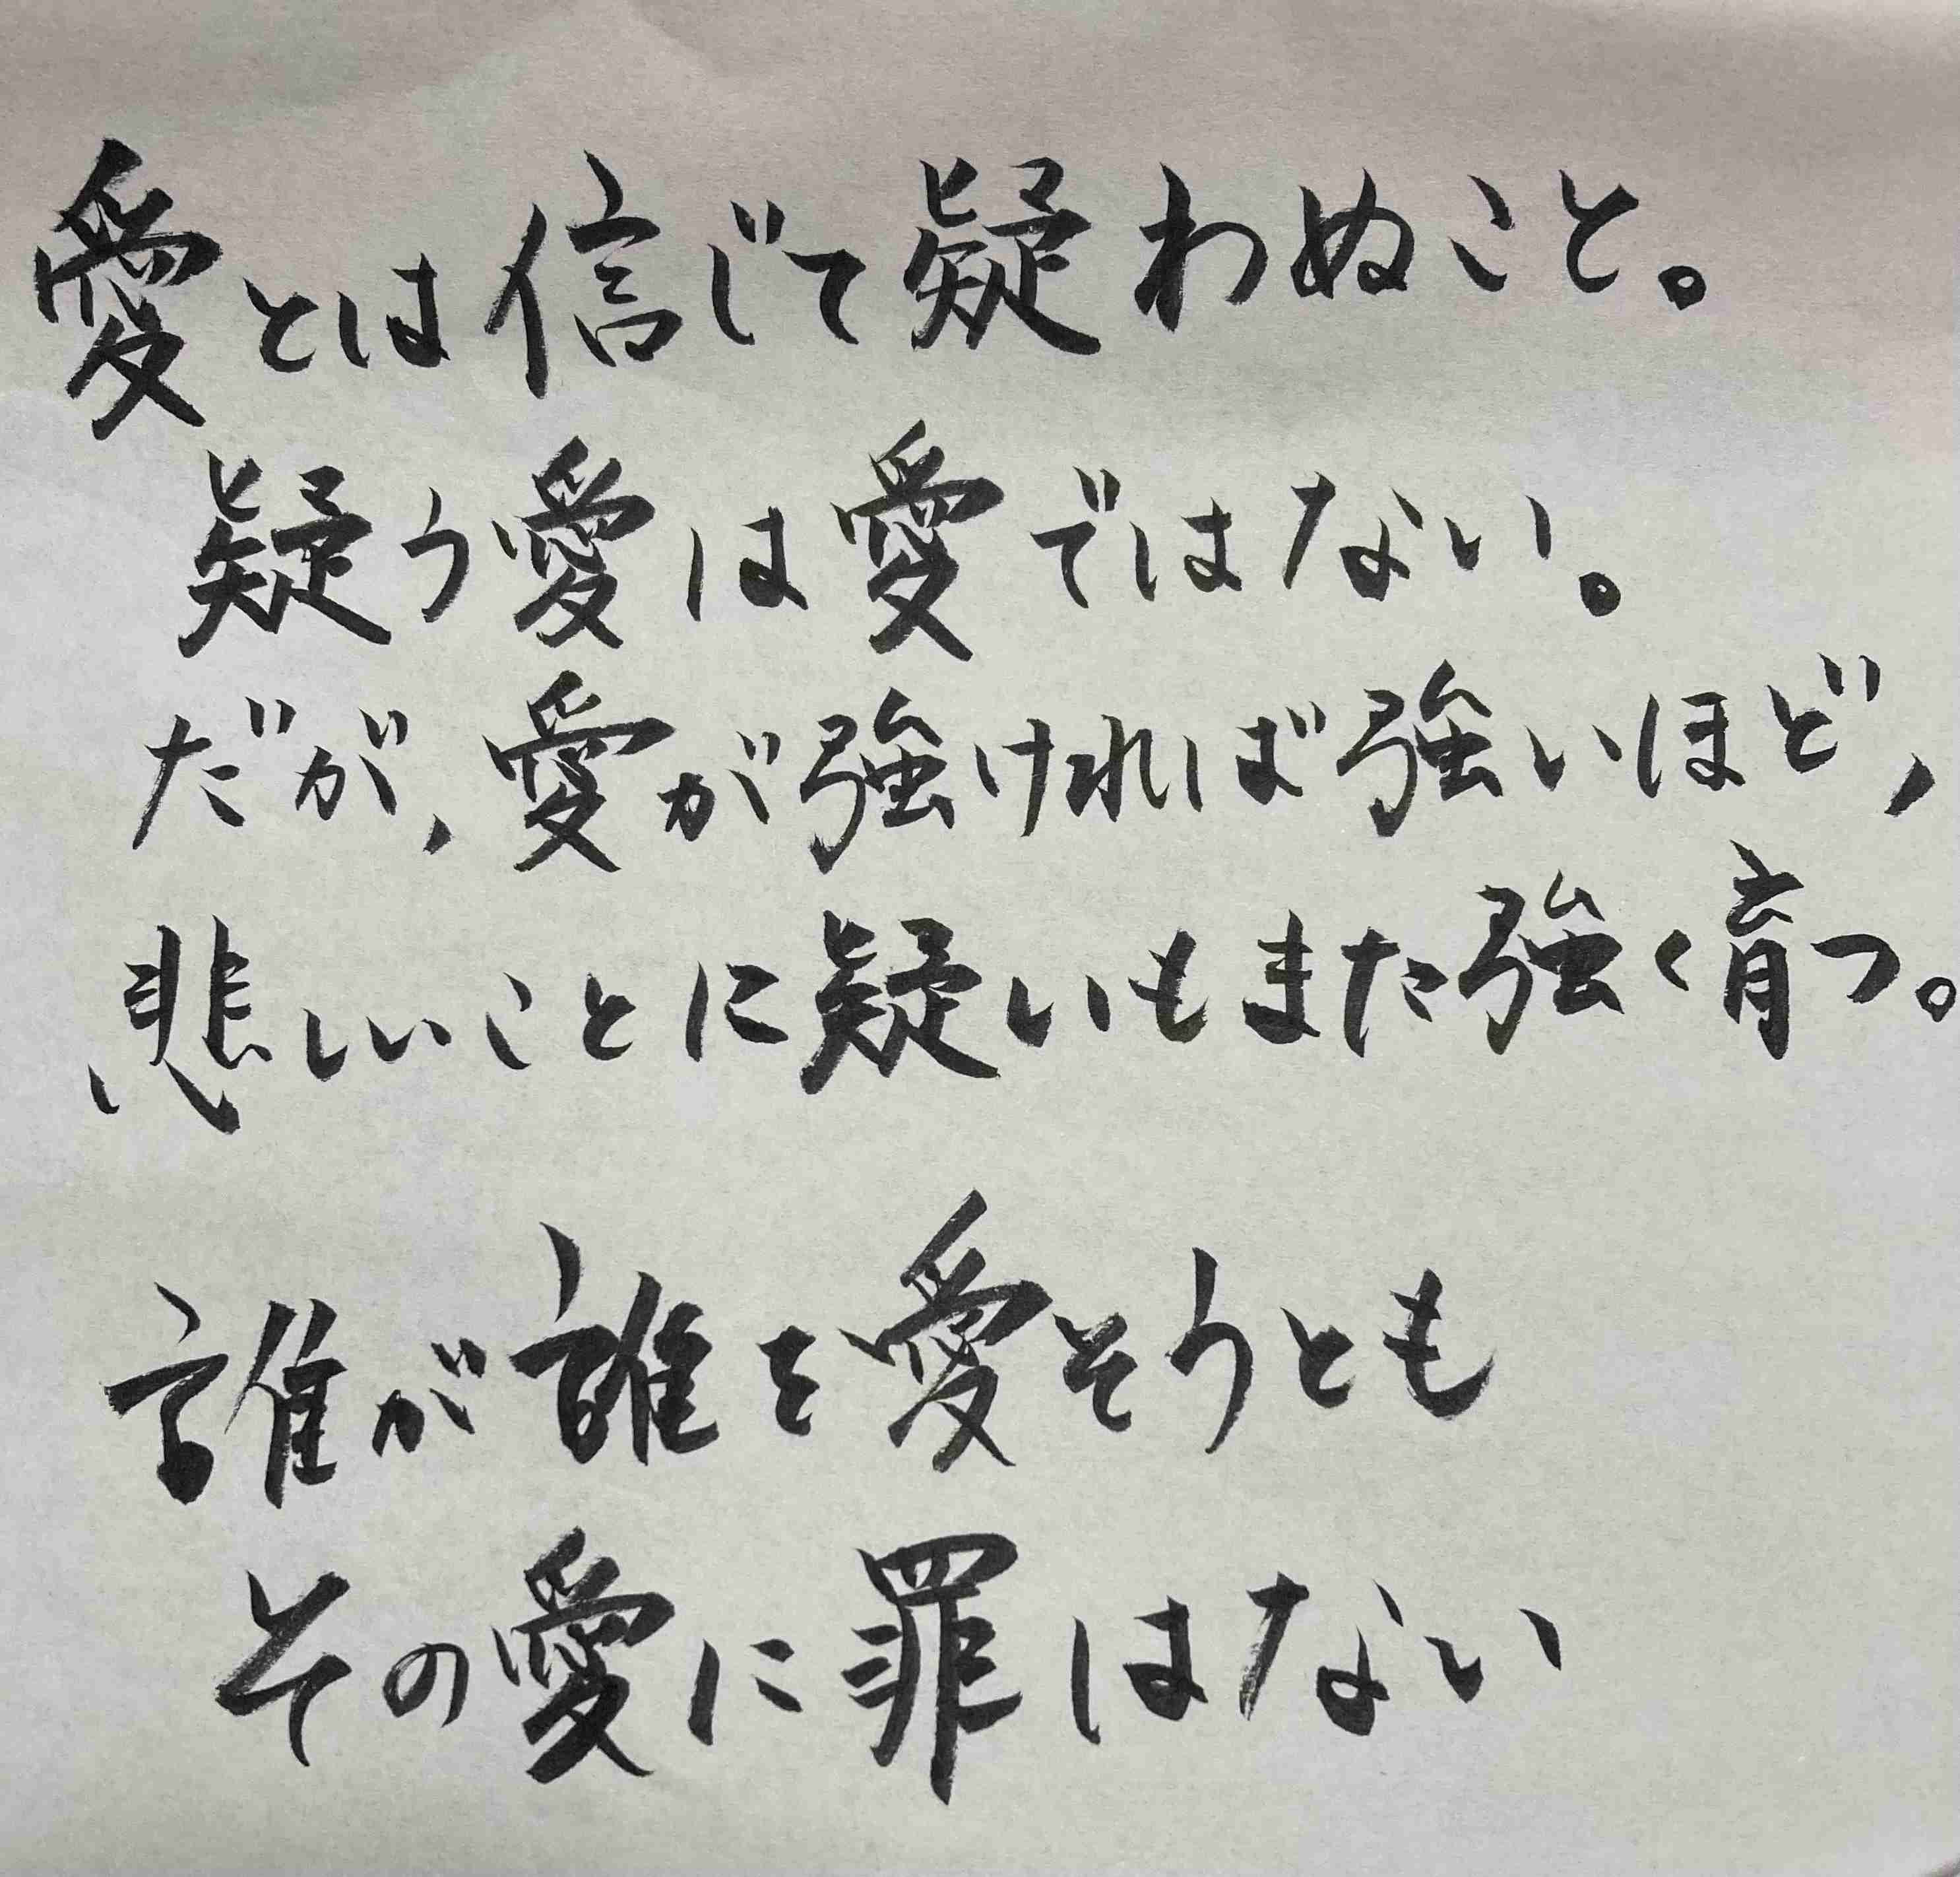 愛とは信じて疑わぬこと。
疑う愛は愛ではない。
だが,愛が強ければ強いほど,
悲しいことに疑いもまた強く育つ。
誰が誰を愛そうとも
その愛に罪はない